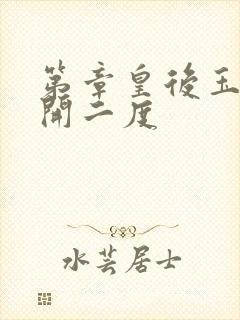 第章皇後玉
開二度
水芸居士